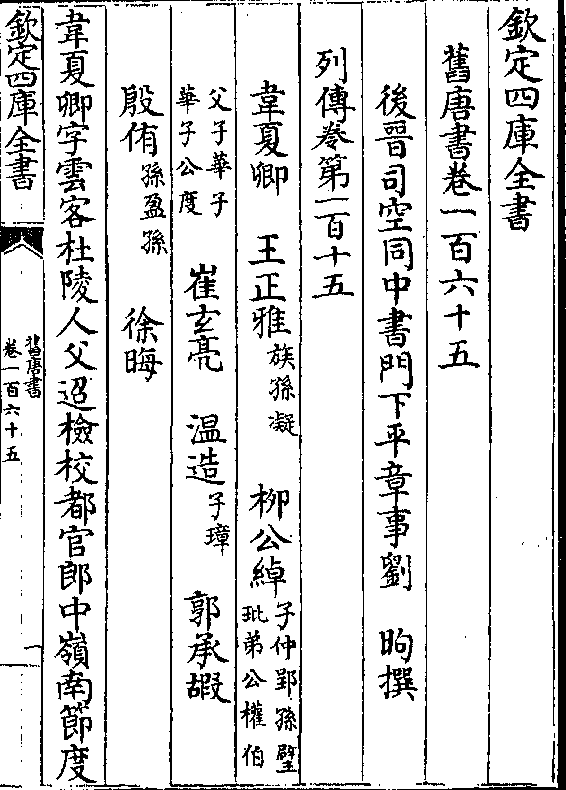 欽定四庫全書
舊唐書卷一百六十五
後晉司空同中書門下平章事劉 昫撰
列傳卷第一百十五
韋夏卿 王正雅族孫凝 柳公綽子仲郢孫璧玭弟公權伯
父子華子華子公度 崔玄亮 温造子璋 郭承嘏
殷侑孫盈孫 徐晦
韋夏卿字雲客杜陵人父迢檢校都官郎中嶺南節度
欽定四庫全書
舊唐書
卷一百六十五